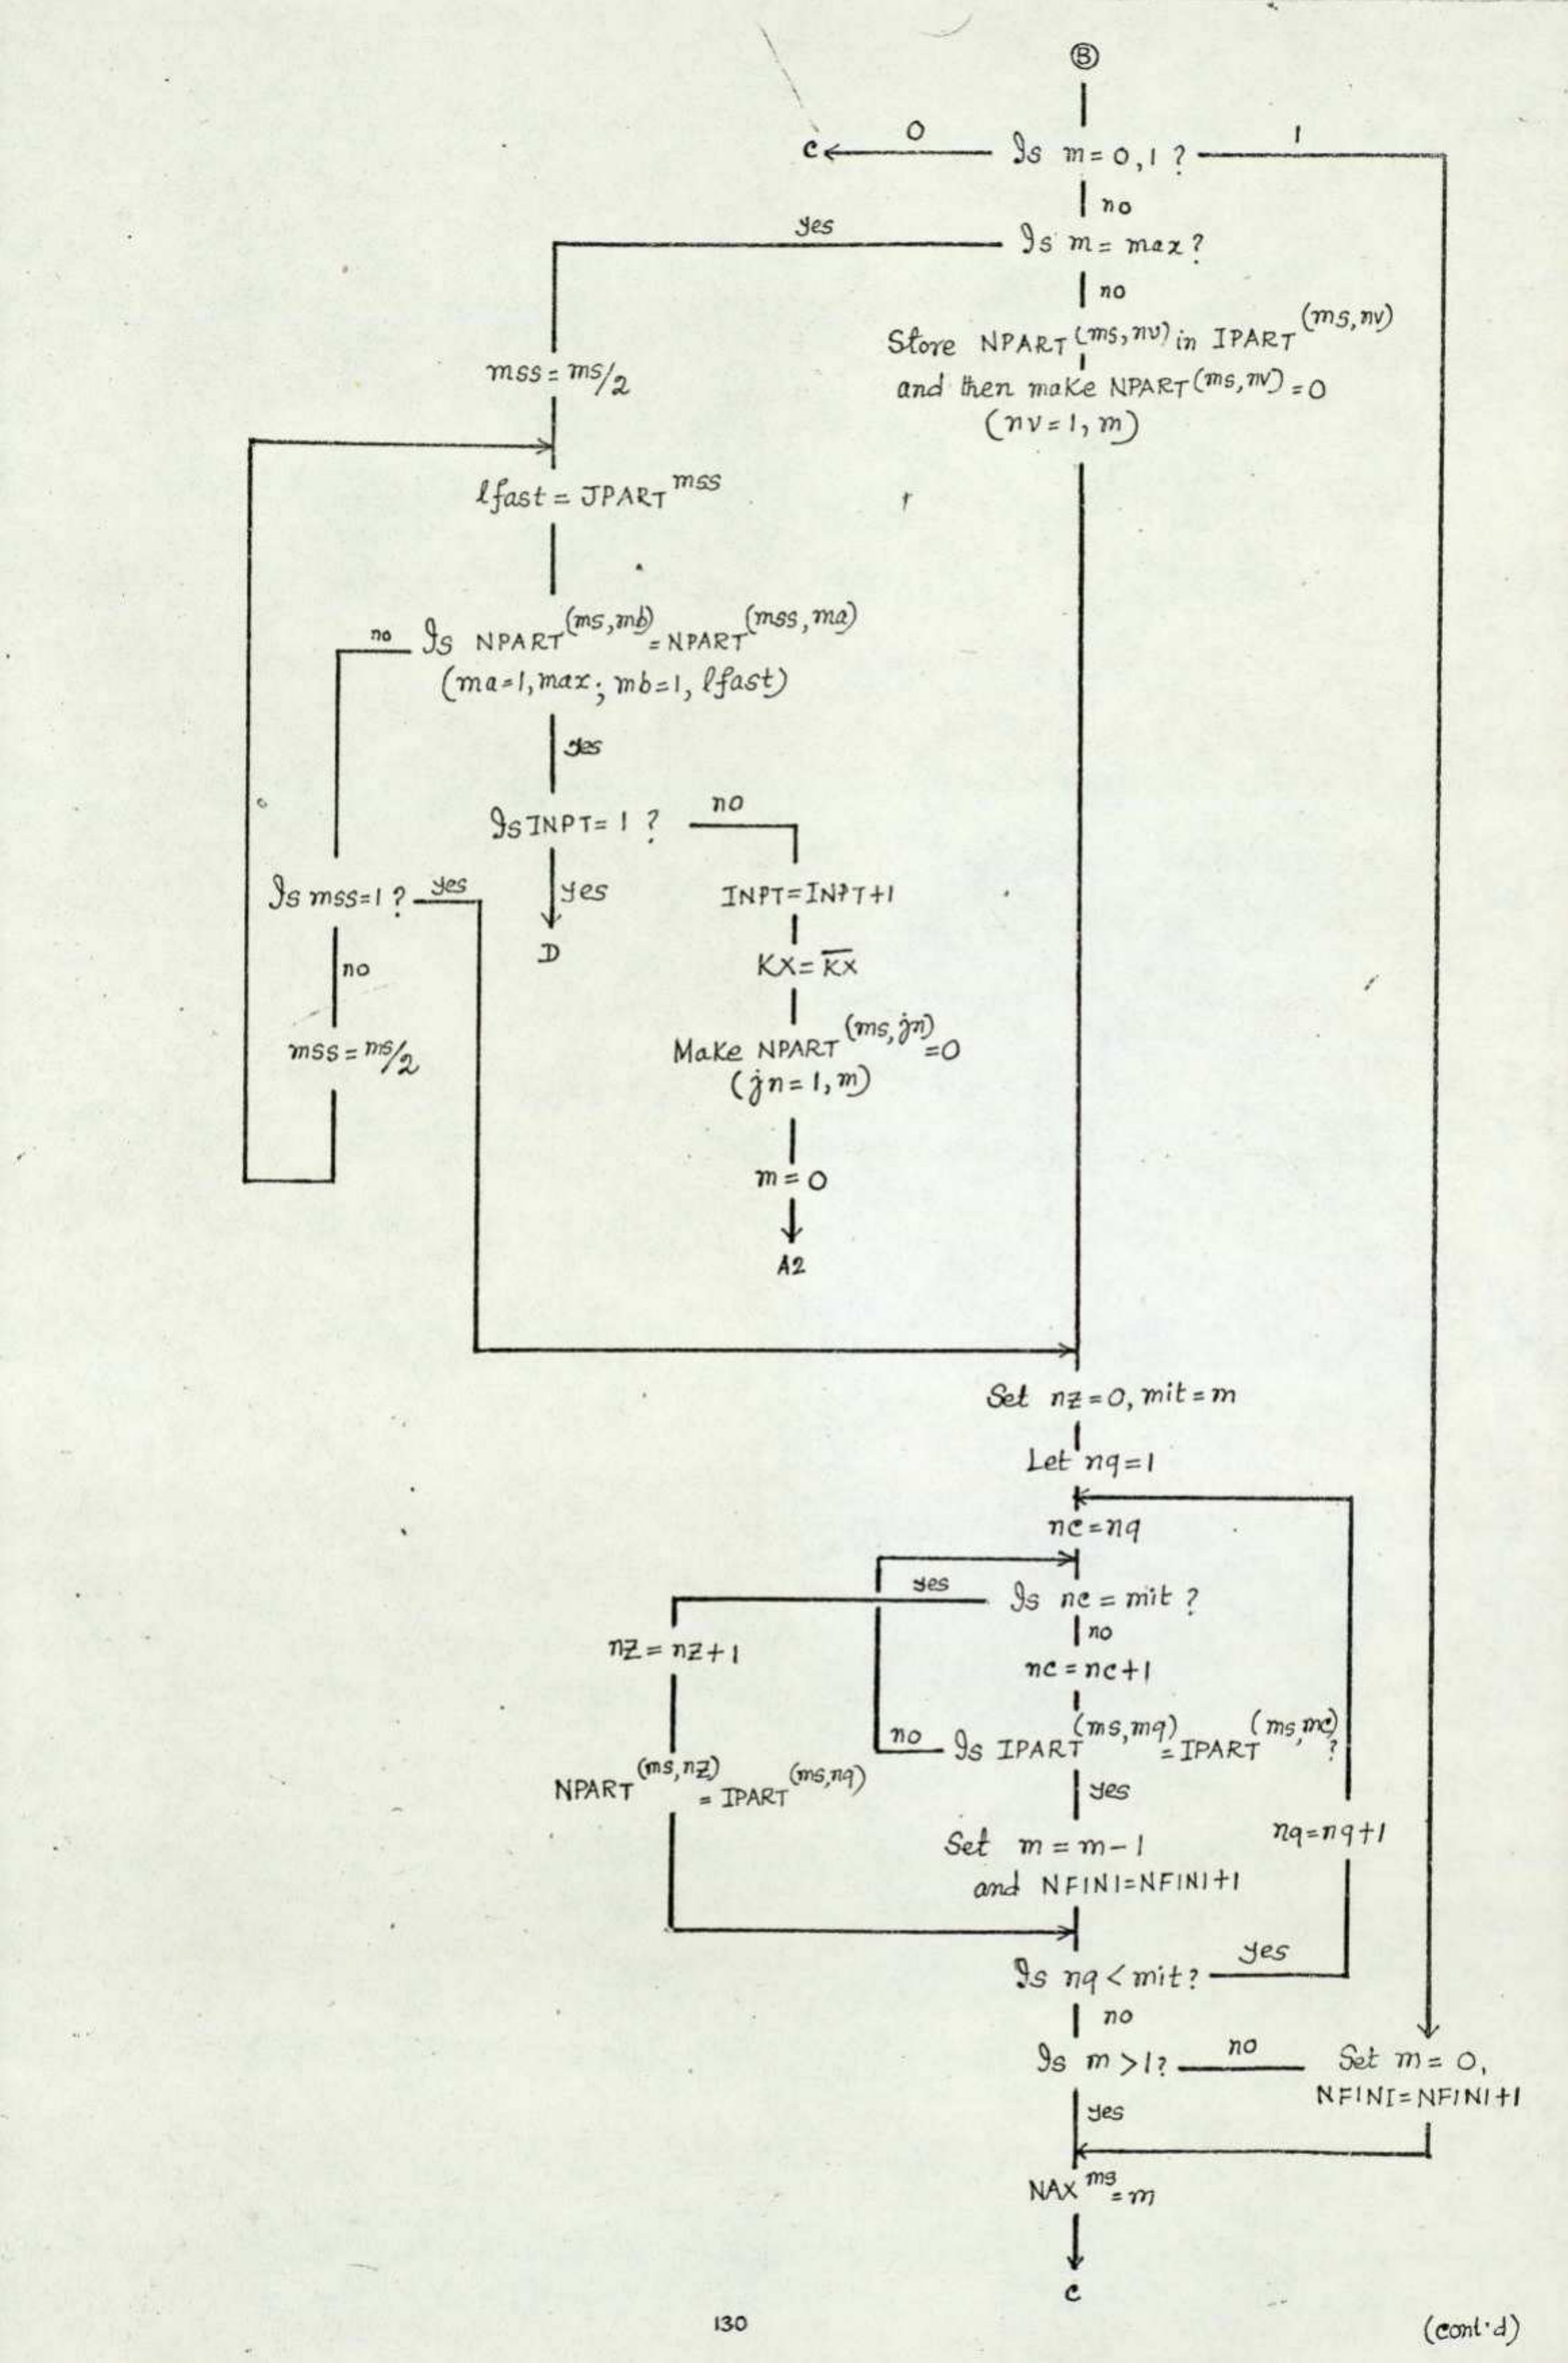 B
C 0 Is m = 0,1 ? 1
no
yes Is m = max?
no
Store NPART(ms,nv) in IPART(ms,nv)
and then make NPART(ms,nv) = 0
(nv = 1, m)
mss = ms/2
lfast = JPART mss
no Is NPART(ms,mb) = NPART(mss,ma)
(ma=1,max; mb=1, lfast)
yes
Is INPT= 1 ? no
yes
D
INPT=INPT+1
KX= K̅X̅
Make NPART(ms,jn) =0
(jn = 1, m)
m = 0
A2
Is mss=1 ? yes
no
mss = ms/2
Set nz=0, mit=m
Let nq=1
nc=nq
yes Is nc = mit ?
no
nc = nc+1
no Is IPART(ms,mq) = IPART(ms,mc) ?
yes
nz = nz+1
NPART(ms,nz) = IPART(ms,nq)
Set m = m-1
and NFINI=NFINI+1
nq=nq+1
Is nq < mit? yes
no
Is m >1? no
yes
Set m = 0,
NFINI=NFINI+1
NAX ms = m
C
130
(cont'd)